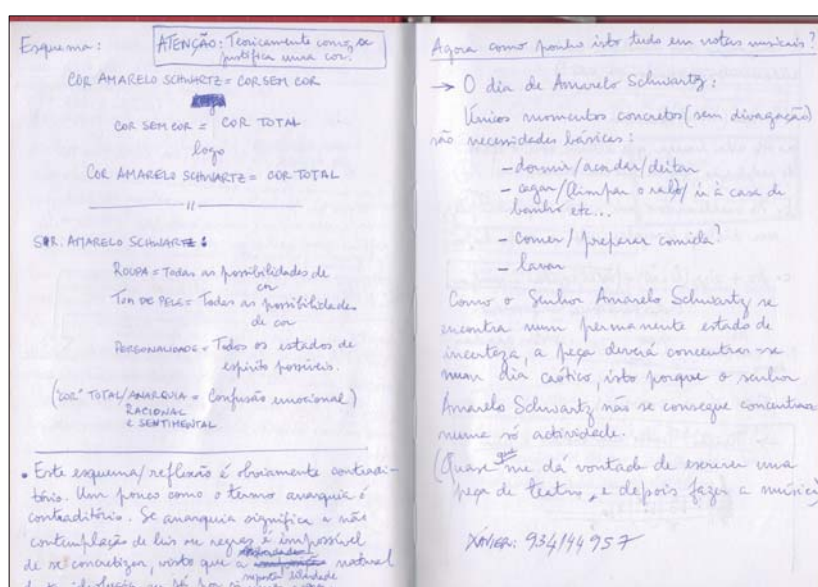 Esquema:
ATENÇÃO: Teoricamente como se
justifica uma cor.
COR AMARELO SCHWARTZ = COR SEM COR
COR SEM COR = COR TOTAL
logo
COR AMARELO SCHWARTZ = COR TOTAL
SR. AMARELO SCHWARTZ:
ROUPA = Todas as possibilidades de
cor
TOM DE PELE = Todas as possibilidades
de cor
PERSONALIDADE = Todos os estados de
espírito possíveis.
("COR" TOTAL/ANARQUIA = Confusão emocional)
RACIONAL
E SENTIMENTAL
• Este esquema/reflexão é obviamente contradi-
tório. Um pouco como o termo anarquia é
contraditório. Se anarquia significa a não
contemplação de leis ou regras é impossível
de se concretizar, visto que a natural
Agora como ponho isto tudo em notas musicais?
→ O dia de Amarelo Schwartz:
Únicos momentos concretos (sem divagação)
são necessidades básicas:
- dormir/acordar/deitar
- cagar/limpar o rabo/ir à casa de
banho etc...
- comer/preparar comida?
- lavar
Como o Senhor Amarelo Schwartz se
encontra num permanente estado de
incerteza, a peça deverá concentrar-se
num dia caótico, isto porque o senhor
Amarelo Schwartz não se consegue concentrar
numa só actividade.
(Quase que me dá vontade de escrever uma
peça de teatro, e depois fazer a música)
XAVIER: 934144957